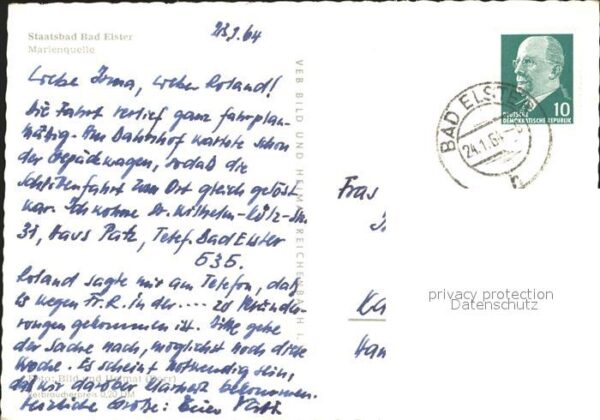 Staatsbad Bad Elster
Marienquelle
23.1.64
Liebe Irma, lieber Roland!
Die Fahrt verlief ganz fahrplan-
mäßig. Am Bahnhof wartete schon
der Gepäckwagen, sodaß die
Schlittenfahrt zum Ort gleich gelöst
war. Ich wohne Dr.-Wilhelm-Külz-Str.
31, Haus Patz, Telef. Bad Elster
635.
Roland sagte mir am Telefon, daß
es wegen Fr. R. in der .... zu Verände-
rungen gekommen ist. Bitte gehe
der Sache nach, möglichst noch diese
Woche. Es scheint notwendig sein,
daß wir darüber Klarheit bekommen.
Herzliche Grüße: Euer
Foto: Bild und Heimat
Verbraucherpreis 0,20 DM
VEB BILD UND HEIMAT REICHENBACH I.
DEUTSCHE
DEMOKRATISCHE REPUBLIK
10
BAD ELSTER
24.1.64
Frau
privacy protection
Datenschutz